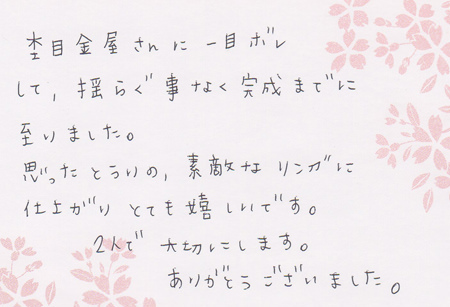 杢目金屋さんに一目ボレ
して、揺らぐ事なく完成までに
至りました。
思ったとうりの、素敵なリングに
仕上がりとても嬉しいです。
2人で大切にします。
ありがとうございました。